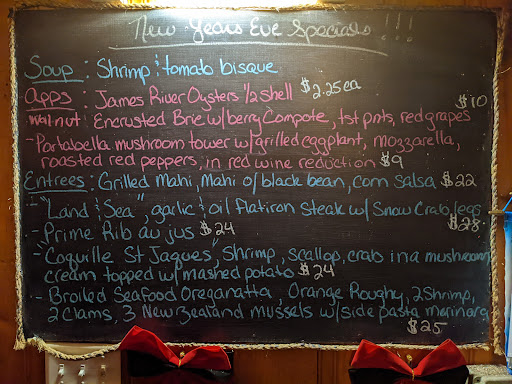 New Years Eve Specials!!!
Soup: Shrimp & tomato bisque
Apps: James River Oysters 1/2 shell $2.25 ea
Walnut Encrusted Brie w/berry Compote, tst pnts, red grapes $10
- Portabella mushroom tower w/grilled eggplant, mozzarella,
roasted red peppers, in red wine reduction $9
Entrees: Grilled Mahi, Mahi o/black bean, corn salsa $22
- "Land & Sea", garlic & oil Flatiron Steak w/ Snow Crab legs
- Prime Rib au jus $24 $28
- "Coquille St Jaques" Shrimp, scallop, crab in a mushroom
cream topped w/mashed potato $24
- Broiled Seafood Oreganatta, Orange Roughy, 2 Shrimp,
2 Clams, 3 New Zealand mussels w/side pasta marinara
$25